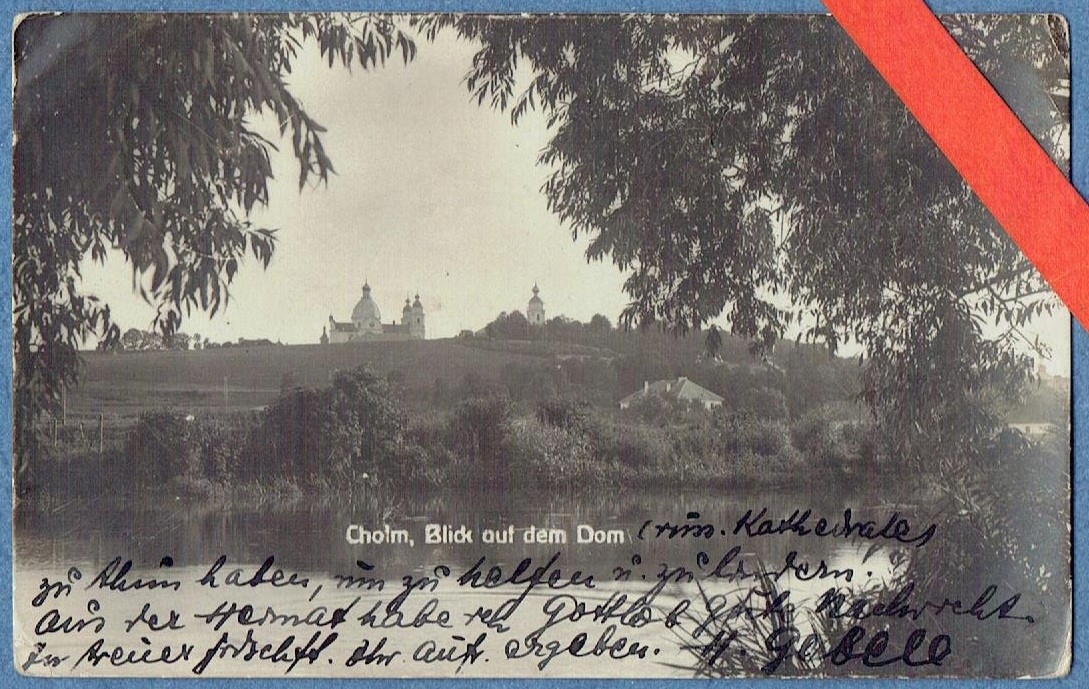 Cholm, Blick auf dem Dom (russ. Kathedrale)
zu thun haben, um zu helfen u. zu lindern.
aus der Heimat habe ich Gottlob gute Nachricht.
In treuer frdschft. Ihr aufr. ergeben. H. Gebele